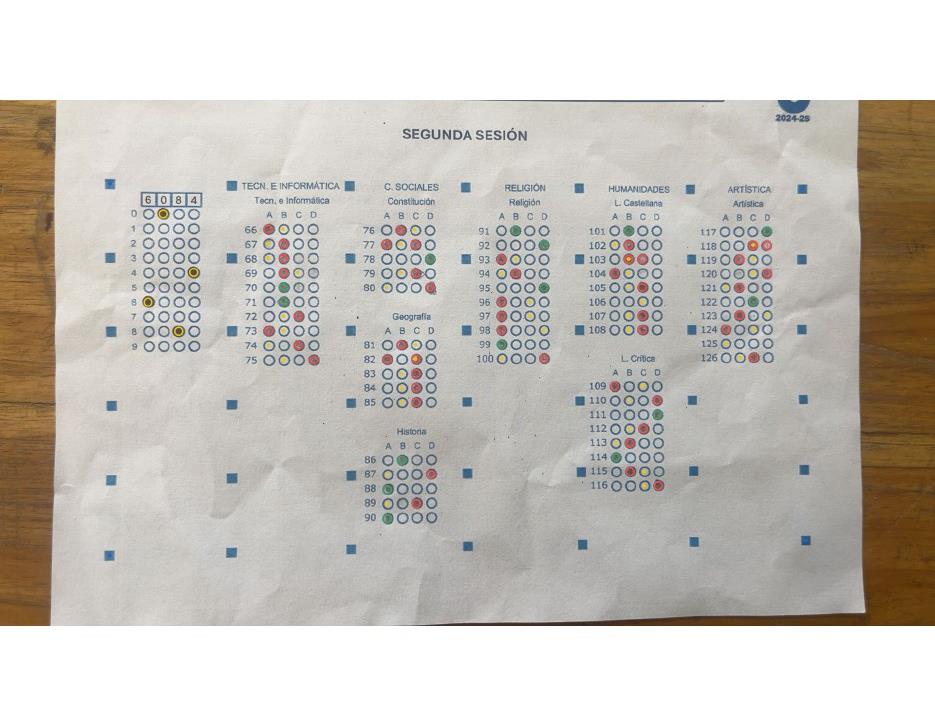 2024-25
SEGUNDA SESIÓN
6 0 8 4
0
1
2
3
4
5
6
7
8
9
TECN. E INFORMÁTICA
Tecn. e Informática
A B C D
66
67
68
69
70
71
72
73
74
75
C. SOCIALES
Constitución
A B C D
76
77
78
79
80
Geografía
A B C D
81
82
83
84
85
Historia
A B C D
86
87
88
89
90
RELIGIÓN
Religión
A B C D
91
92
93
94
95
96
97
98
99
100
HUMANIDADES
L. Castellana
A B C D
101
102
103
104
105
106
107
108
L. Crítica
A B C D
109
110
111
112
113
114
115
116
ARTÍSTICA
Artística
A B C D
117
118
119
120
121
122
123
124
125
126